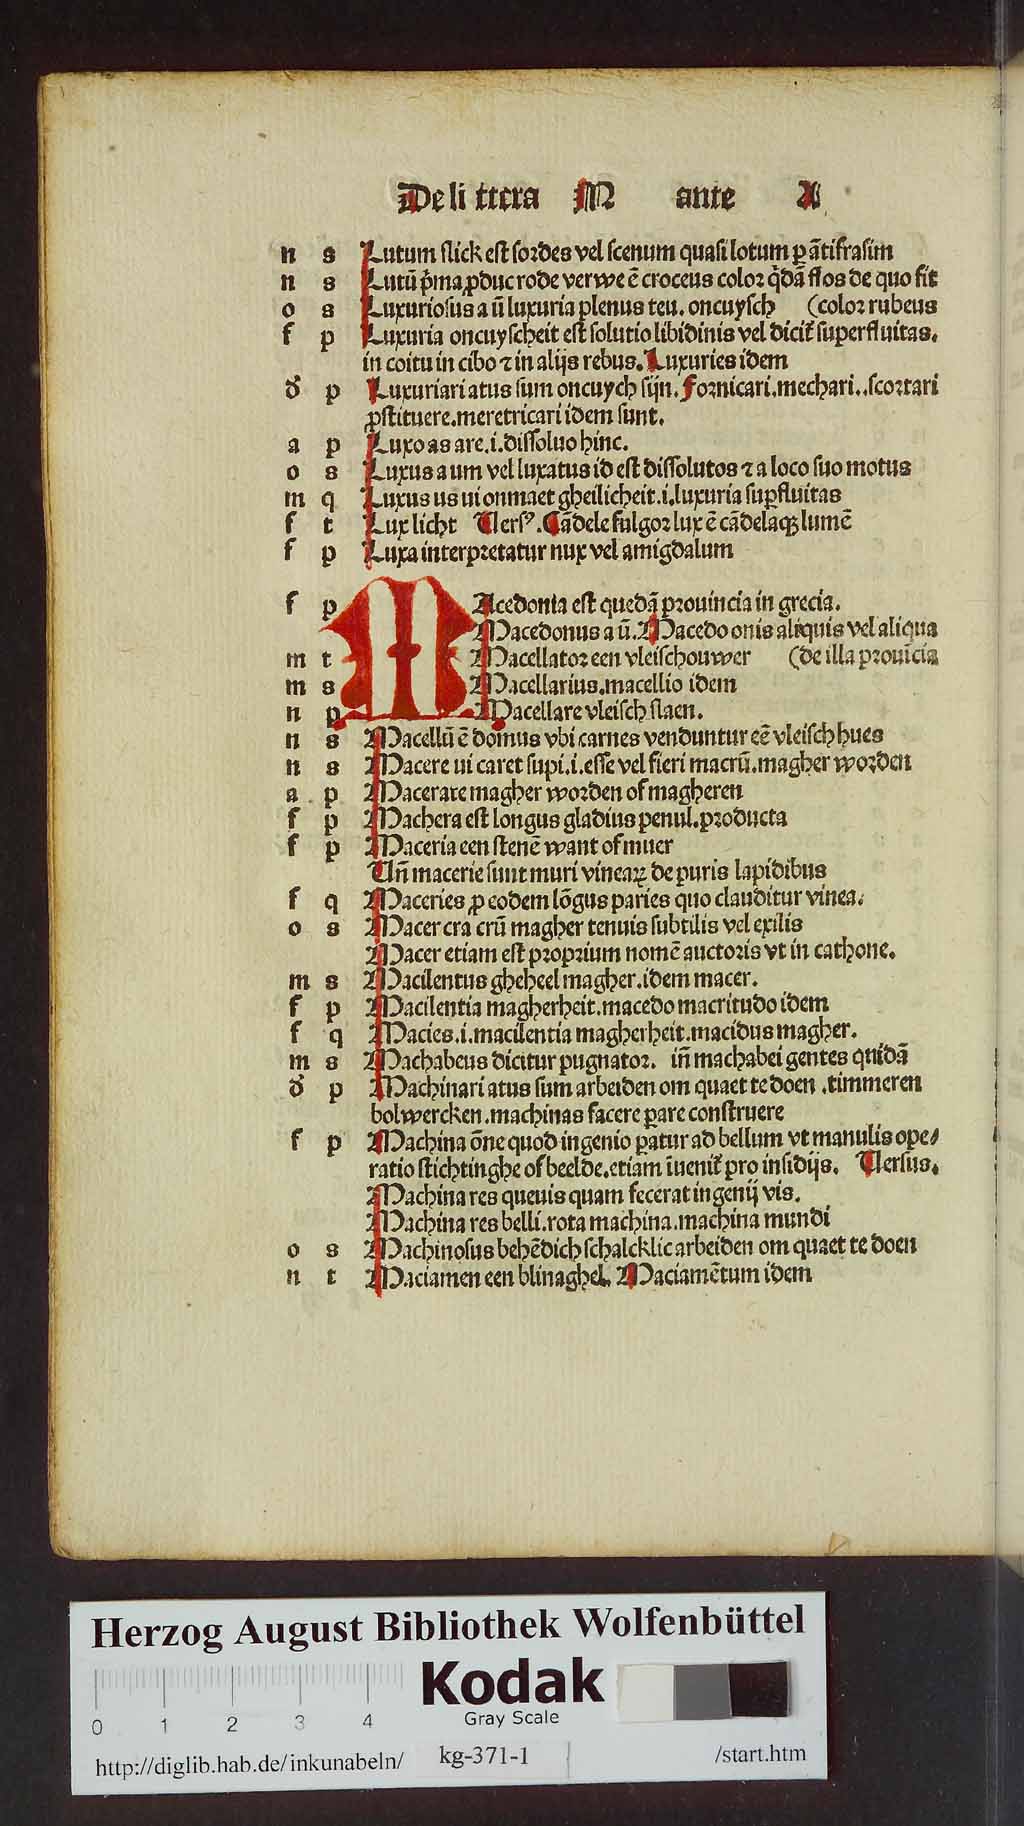 De li ttera M ante A
n s Lutum slick est sordes vel scenum quasi lotum ꝑ ãtifrasim
n s Lutū p̄ma ꝓduc rode verwe ē croceus color q̇dã flos de quo fit
o s Luxuriosus a ū luxuria plenus teu. oncuysch (color rubeus
f p Luxuria oncuyscheit est solutio libidinis vel dicit᷑ superfluitas.
in coitu in cibo ⁊ in alijs rebus. Luxuries idem
d᷑ p Luxuriari atus sum oncuych sijn. fornicari. mechari..scortari
ꝓstituere.meretricari idem sunt.
a p Luxo as are.i.dissoluo hinc.
o s Luxus a um vel luxatus id est dissolutos ⁊ a loco suo motus
m q Luxus us ui onmaet gheilicheit.i.luxuria suꝑfluitas
f t Lux licht Versꝰ. Cãdele fulgor lux ē cãdelaqꝫ lumē
f p Luxa interpretatur nux vel amigdalum
f p MAcedonia est quedã prouincia in grecia.
Macedonus a ū. Macedo onis aliquis vel aliqua
m t Macellator een vleischouwer (de illa prouīcia
m s Macellarius.macellio idem
n p Macellare vleisch slaen.
n s Macellū ē domus vbi carnes venduntur eē vleisch hues
n s Macere ui caret supi.i.esse vel fieri macrū.magher worden
a p Macerare magher worden of magheren
f p Machera est longus gladius penul.producta
f p Maceria een stenē want of muer
Vn̄ macerie sunt muri vineaꝝ de puris lapidibus
f q Maceries ꝓ eodem lōgus paries quo clauditur vinea.
o s Macer cra crū magher tenuis subtilis vel exilis
Macer etiam est proprium nomē auctoris vt in cathone.
m s Macilentus gheheel magher.idem macer.
f p Macilentia magherheit.macedo macritudo idem
f q Macies.i.macilentia magherheit.macidus magher.
m s Machabeus dicitur pugnator. in̄ machabei gentes quidã
d᷑ p Machinari atus sum arbeiden om quaet te doen .timmeren
bolwercken.machinas facere ꝑare construere
f p Machina ōne quod ingenio ꝑatur ad bellum vt manulis ope/
ratio stichtinghe of beelde.etiam īuenit᷑ pro insidijs. Versus.
Machina res queuis quam fecerat ingenij vis.
Machina res belli.rota machina.machina mundi
o s Machinosus behēdich schalcklic arbeiden om quaet te doen
n t Maciamen een blinaghel. Maciamētum idem
Herzog August Bibliothek Wolfenbüttel
Kodak
Gray Scale
0 1 2 3 4
http://diglib.hab.de/inkunabeln/ kg-371-1 /start.htm